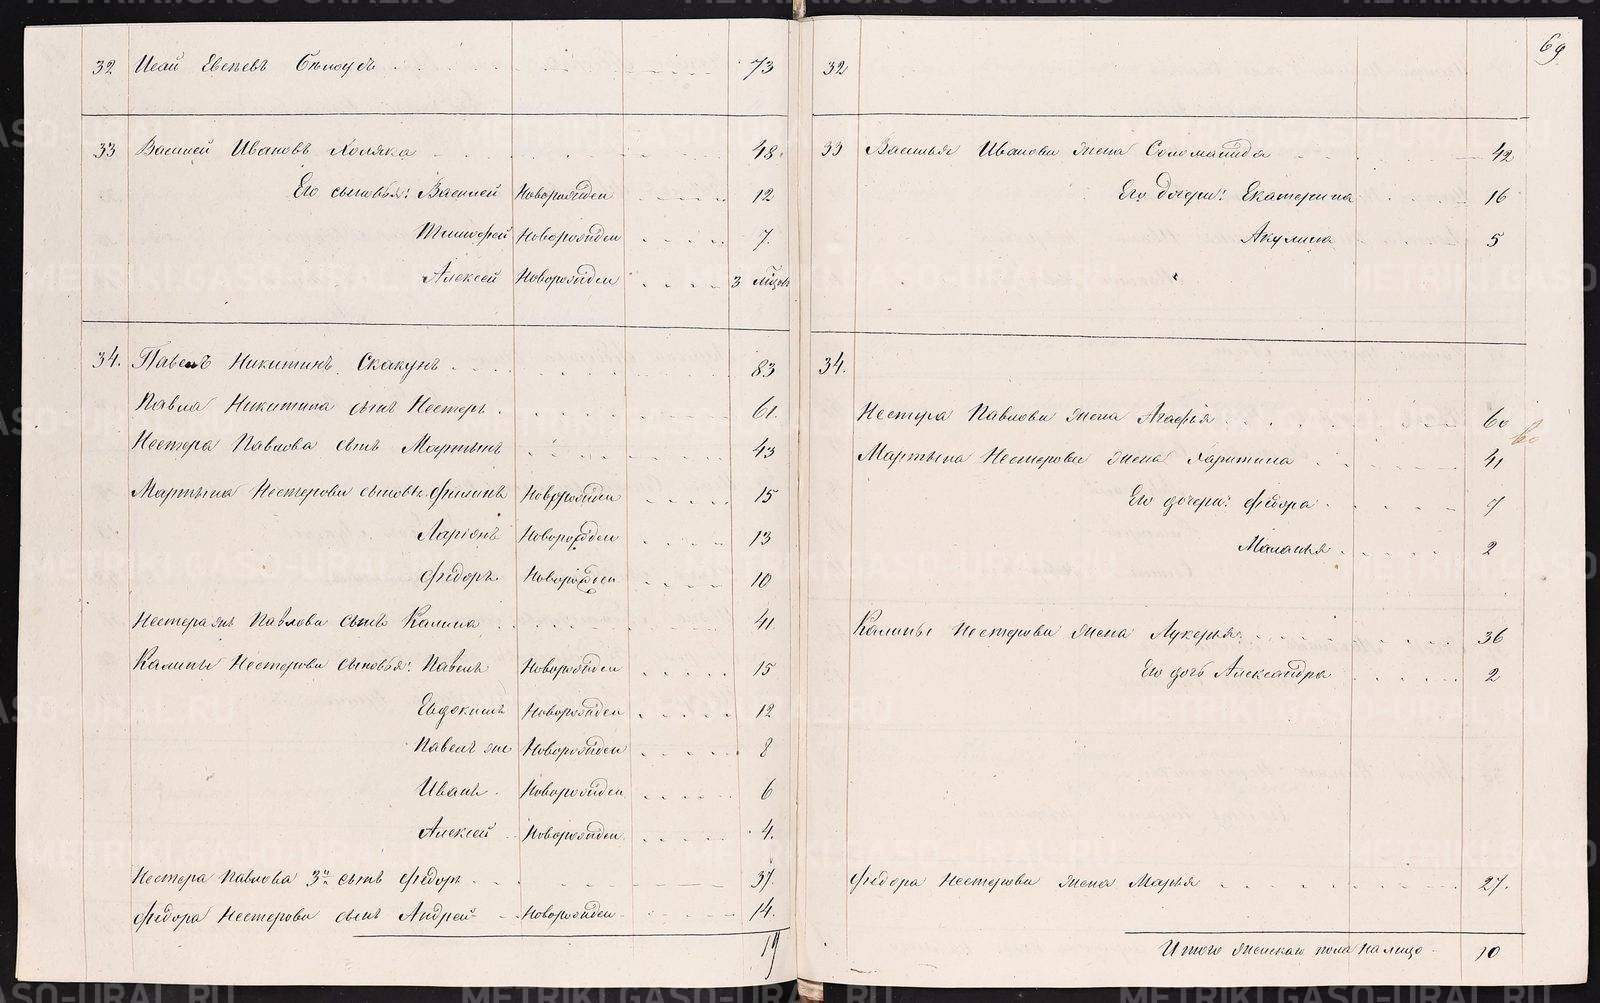 32 Исай Евсеевъ Бѣлоусъ 73
33 Василей Ивановъ Холяка 48.
Его сыновья: Василей Новорожден 12
Тимофей Новорожден 7.
Алексей Новорожден 3 мѣсяц
34. Павелъ Никитинъ Скакунъ 83
Павла Никитина сынъ Нестеръ 61.
Нестера Павлова сынъ Мартынъ 43
Мартына Нестерова сыновья Филипъ Новорожден 15
Ларіонъ Новорожден 13
Федоръ Новорожден 10
Нестера жъ Павлова сынъ Калина 41.
Калины Нестерова сыновья: Павелъ Новорожден 15
Евдокимъ Новорожден 12
Павелъ же Новорожден 8
Иванъ Новорожден 6
Алексей Новорожден 4.
Нестера Павлова 3й сынъ Федоръ 37.
Федора Нестерова сынъ Андрей Новорожден 14.
19
69
32
33 Василья Иванова жена Соломанида 42
Его дочери: Екатерина 16
Акулина 5
34.
Нестера Павлова жена Агафья 60
60
Мартына Нестерова жена Харитина 41
Его дочери: Федора 7
Маланья 2
Калины Нестерова жена Лукерья 36
Его дочь Александра 2
Федора Нестерова жена Марья 27.
Итого женскаго пола на лицо 10
METRIKI.GASO-URAL.RU